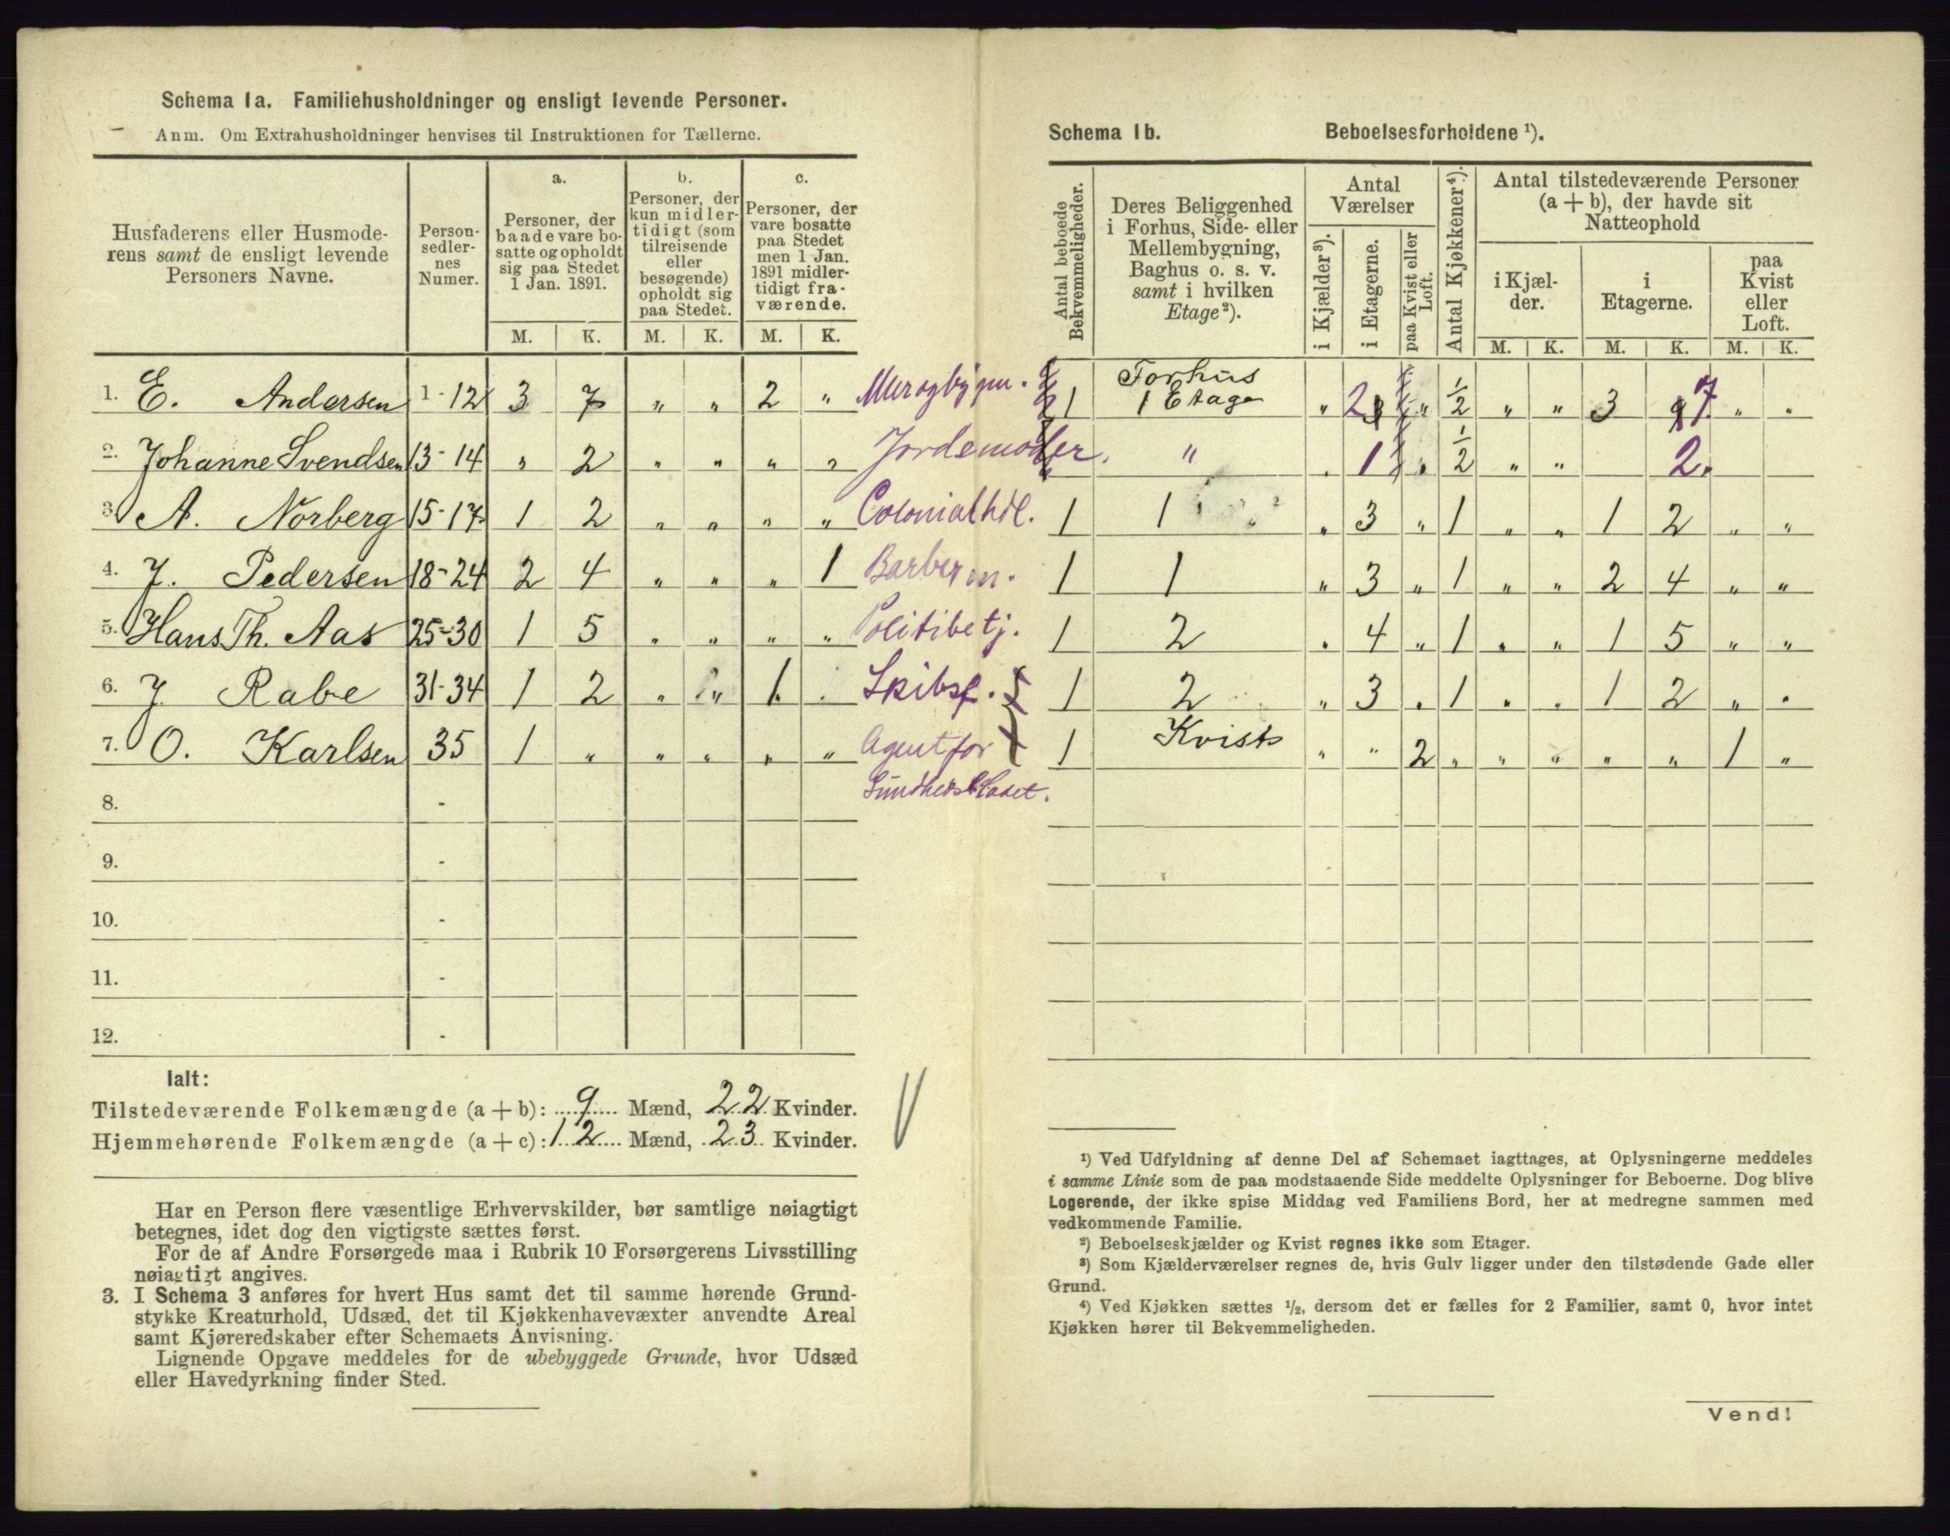 Schema 1a. Familiehusholdninger og ensligt levende Personer.
Anm. Om Extrahusholdninger henvises til Instruktionen for Tællerne.
Husfaderens eller Husmoderens samt de ensligt levende Personers Navne.
Person-sedler-nes Numer.
a.
Personer, der baade vare bosatte og opholdt sig paa Stedet 1 Jan. 1891.
b.
Personer, der kun midlertidigt (som tilreisende eller besøgende) opholdt sig paa Stedet.
c.
Personer, der vare bosatte paa Stedet men 1 Jan. 1891 midlertidigt fraværende.
M. K. M. K. M. K.
1. E. Andersen 1-12 3 7 " " 2 " Murogbygm.
2. Johanne Svendsen 13-14 " 2 " " " " Jordemoder.
3. A. Norberg 15-17 1 2 " " " " Colonialhdl.
4. J. Pedersen 18-24 2 4 " " " 1 Barber m.
5. Hans Th. Aas 25-30 1 5 " " " " Politibetj.
6. J. Rabe 31-34 1 2 " " 1 . Skibsf.
7. O. Karlsen 35 1 " " " " " Agent for
Sundhedsbladet.
8. -
9. -
10. -
11. -
12. -
Ialt:
Tilstedeværende Folkemængde (a + b): 9 Mænd, 22 Kvinder.
Hjemmehørende Folkemængde (a + c): 12 Mænd, 23 Kvinder.
Har en Person flere væsentlige Erhvervskilder, bør samtlige nøiagtigt
betegnes, idet dog den vigtigste sættes først.
For de af Andre Forsørgede maa i Rubrik 10 Forsørgerens Livsstilling
nøiagtigt angives.
3. I Schema 3 anføres for hvert Hus samt det til samme hørende Grund-
stykke Kreaturhold, Udsæd, det til Kjøkkenhavevæxter anvendte Areal
samt Kjøreredskaber efter Schemaets Anvisning.
Lignende Opgave meddeles for de ubebyggede Grunde, hvor Udsæd
eller Havedyrkning finder Sted.
Schema 1b. Beboelsesforholdene ¹).
Antal beboede Bekvemmeligheder.
Deres Beliggenhed i Forhus, Side- eller Mellembygning, Baghus o. s. v. samt i hvilken Etage ²).
Antal Værelser
i Kjælder ³).
i Etagerne.
paa Kvist eller Loft.
Antal Kjøkkener ⁴).
Antal tilstedeværende Personer (a + b), der havde sit Natteophold
i Kjælder.
i Etagerne.
paa Kvist eller Loft.
M. K. M. K. M. K.
1 Forhus 1 Etage " 2 " 1/2 " " 3 7 " "
" . 1 " 1/2 " " 2.
1 1 " 3 " 1 " " 1 2 " "
1 1 " 3 " 1 " " 2 4 " "
1 2 " 4 " 1 " " 1 5 " "
1 2 " 3 " 1 " " 1 2 " "
1 Kvist " " 2 " " " " " 1 "
¹) Ved Udfyldning af denne Del af Schemaet iagttages, at Oplysningerne meddeles
i samme Linie som de paa modstaaende Side meddelte Oplysninger for Beboerne. Dog blive
Logerende, der ikke spise Middag ved Familiens Bord, her at medregne sammen med
vedkommende Familie.
²) Beboelseskjælder og Kvist regnes ikke som Etager.
³) Som Kjælderværelser regnes de, hvis Gulv ligger under den tilstødende Gade eller
Grund.
⁴) Ved Kjøkken sættes ½, dersom det er fælles for 2 Familier, samt 0, hvor intet
Kjøkken hører til Bekvemmeligheden.
Vend!